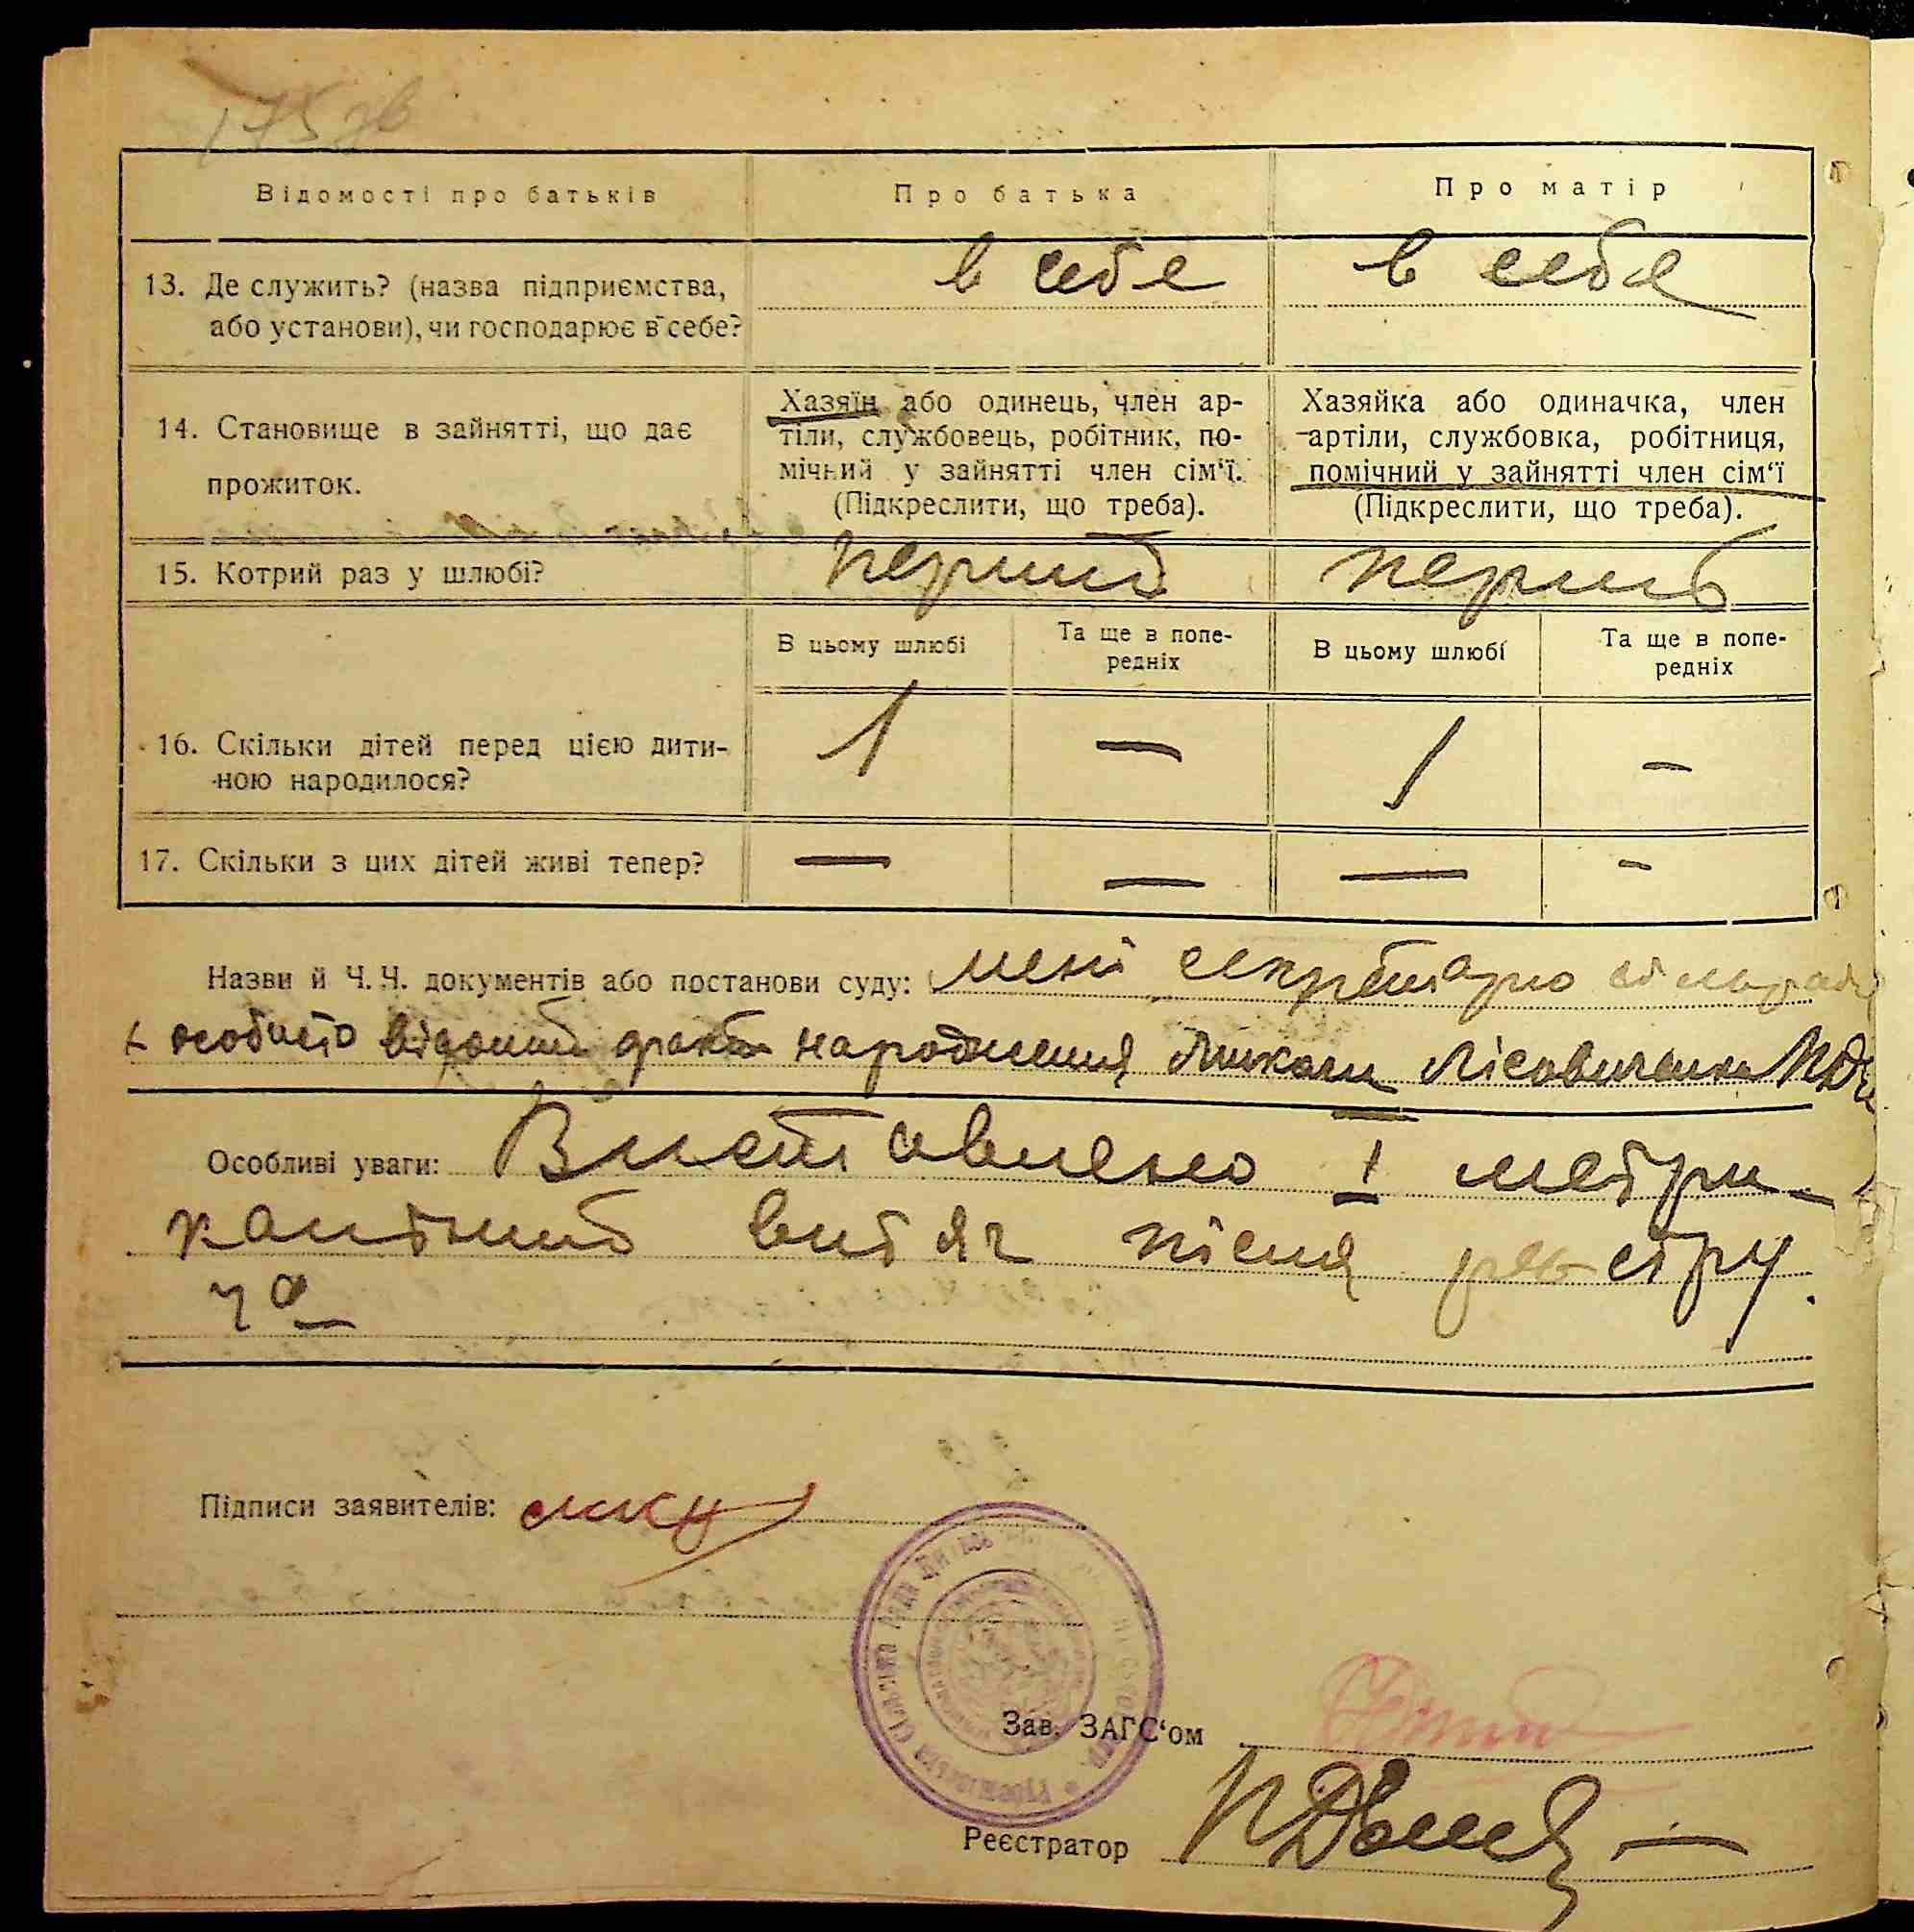 175 зв
Відомості про батьків
Про батька
Про матір
13. Де служить? (назва підприємства,
або установи), чи господарює в себе?
в себе
в себе
14. Становище в зайнятті, що дає
прожиток.
Хазяїн або одинець, член ар-
тіли, службовець, робітник, по-
мічний у зайнятті член сім‘ї.
(Підкреслити, що треба).
Хазяйка або одиначка, член
артіли, службовка, робітниця,
помічний у зайнятті член сім‘ї
(Підкреслити, що треба).
15. Котрий раз у шлюбі?
перший
перший
В цьому шлюбі
Та ще в попе-
редніх
В цьому шлюбі
Та ще в попе-
редніх
16. Скільки дітей перед цією дити-
ною народилося?
1 — 1 —
17. Скільки з цих дітей живі тепер?
— — — —
Назви й Ч.Ч. документів або постанови суду: мені секретарю
особисто відомий факт народження
Особливі уваги: Виставлено 1 метри-
кальний витяг після реєстру.
Підписи заявителів:
Сільська Рада
Зав. ЗАГС‘ом
Реєстратор